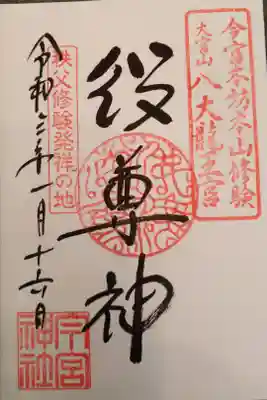 今宮本坊本山修験
大宮山 八大龍王宮
役尊神
秩父修験発祥の地
令和 年一月十六日
今宮神社